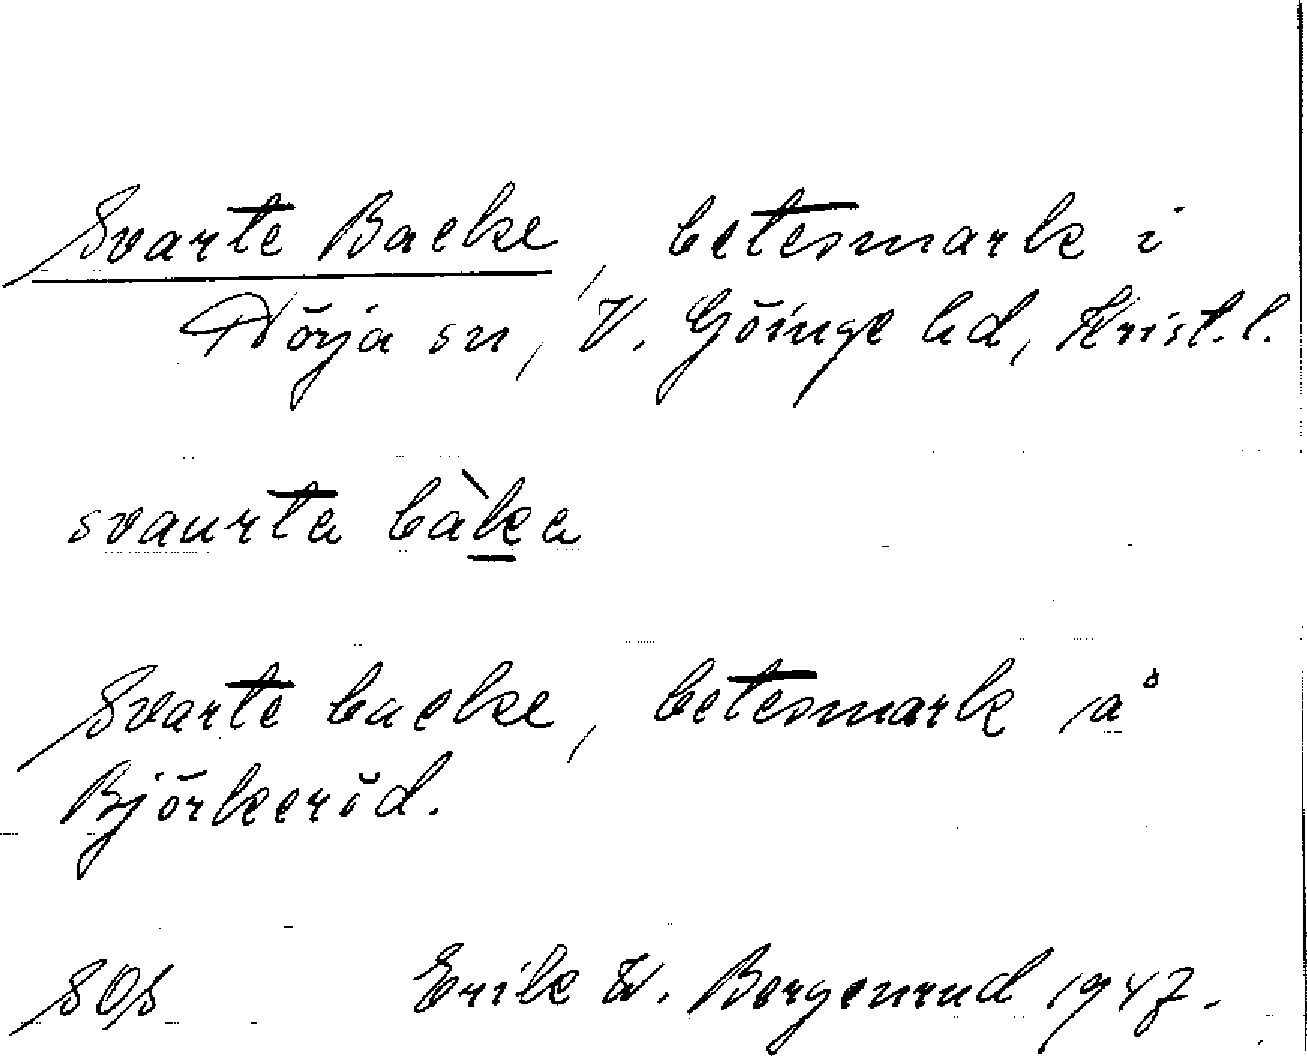 Svarte Backe, betesmark i
Nörja sn, V. Göinge hd, Krist. l.
svaurta bàka
Svarte backe, betesmark på
Björkeröd.
SOS Erik W. Bergenrud 1947.